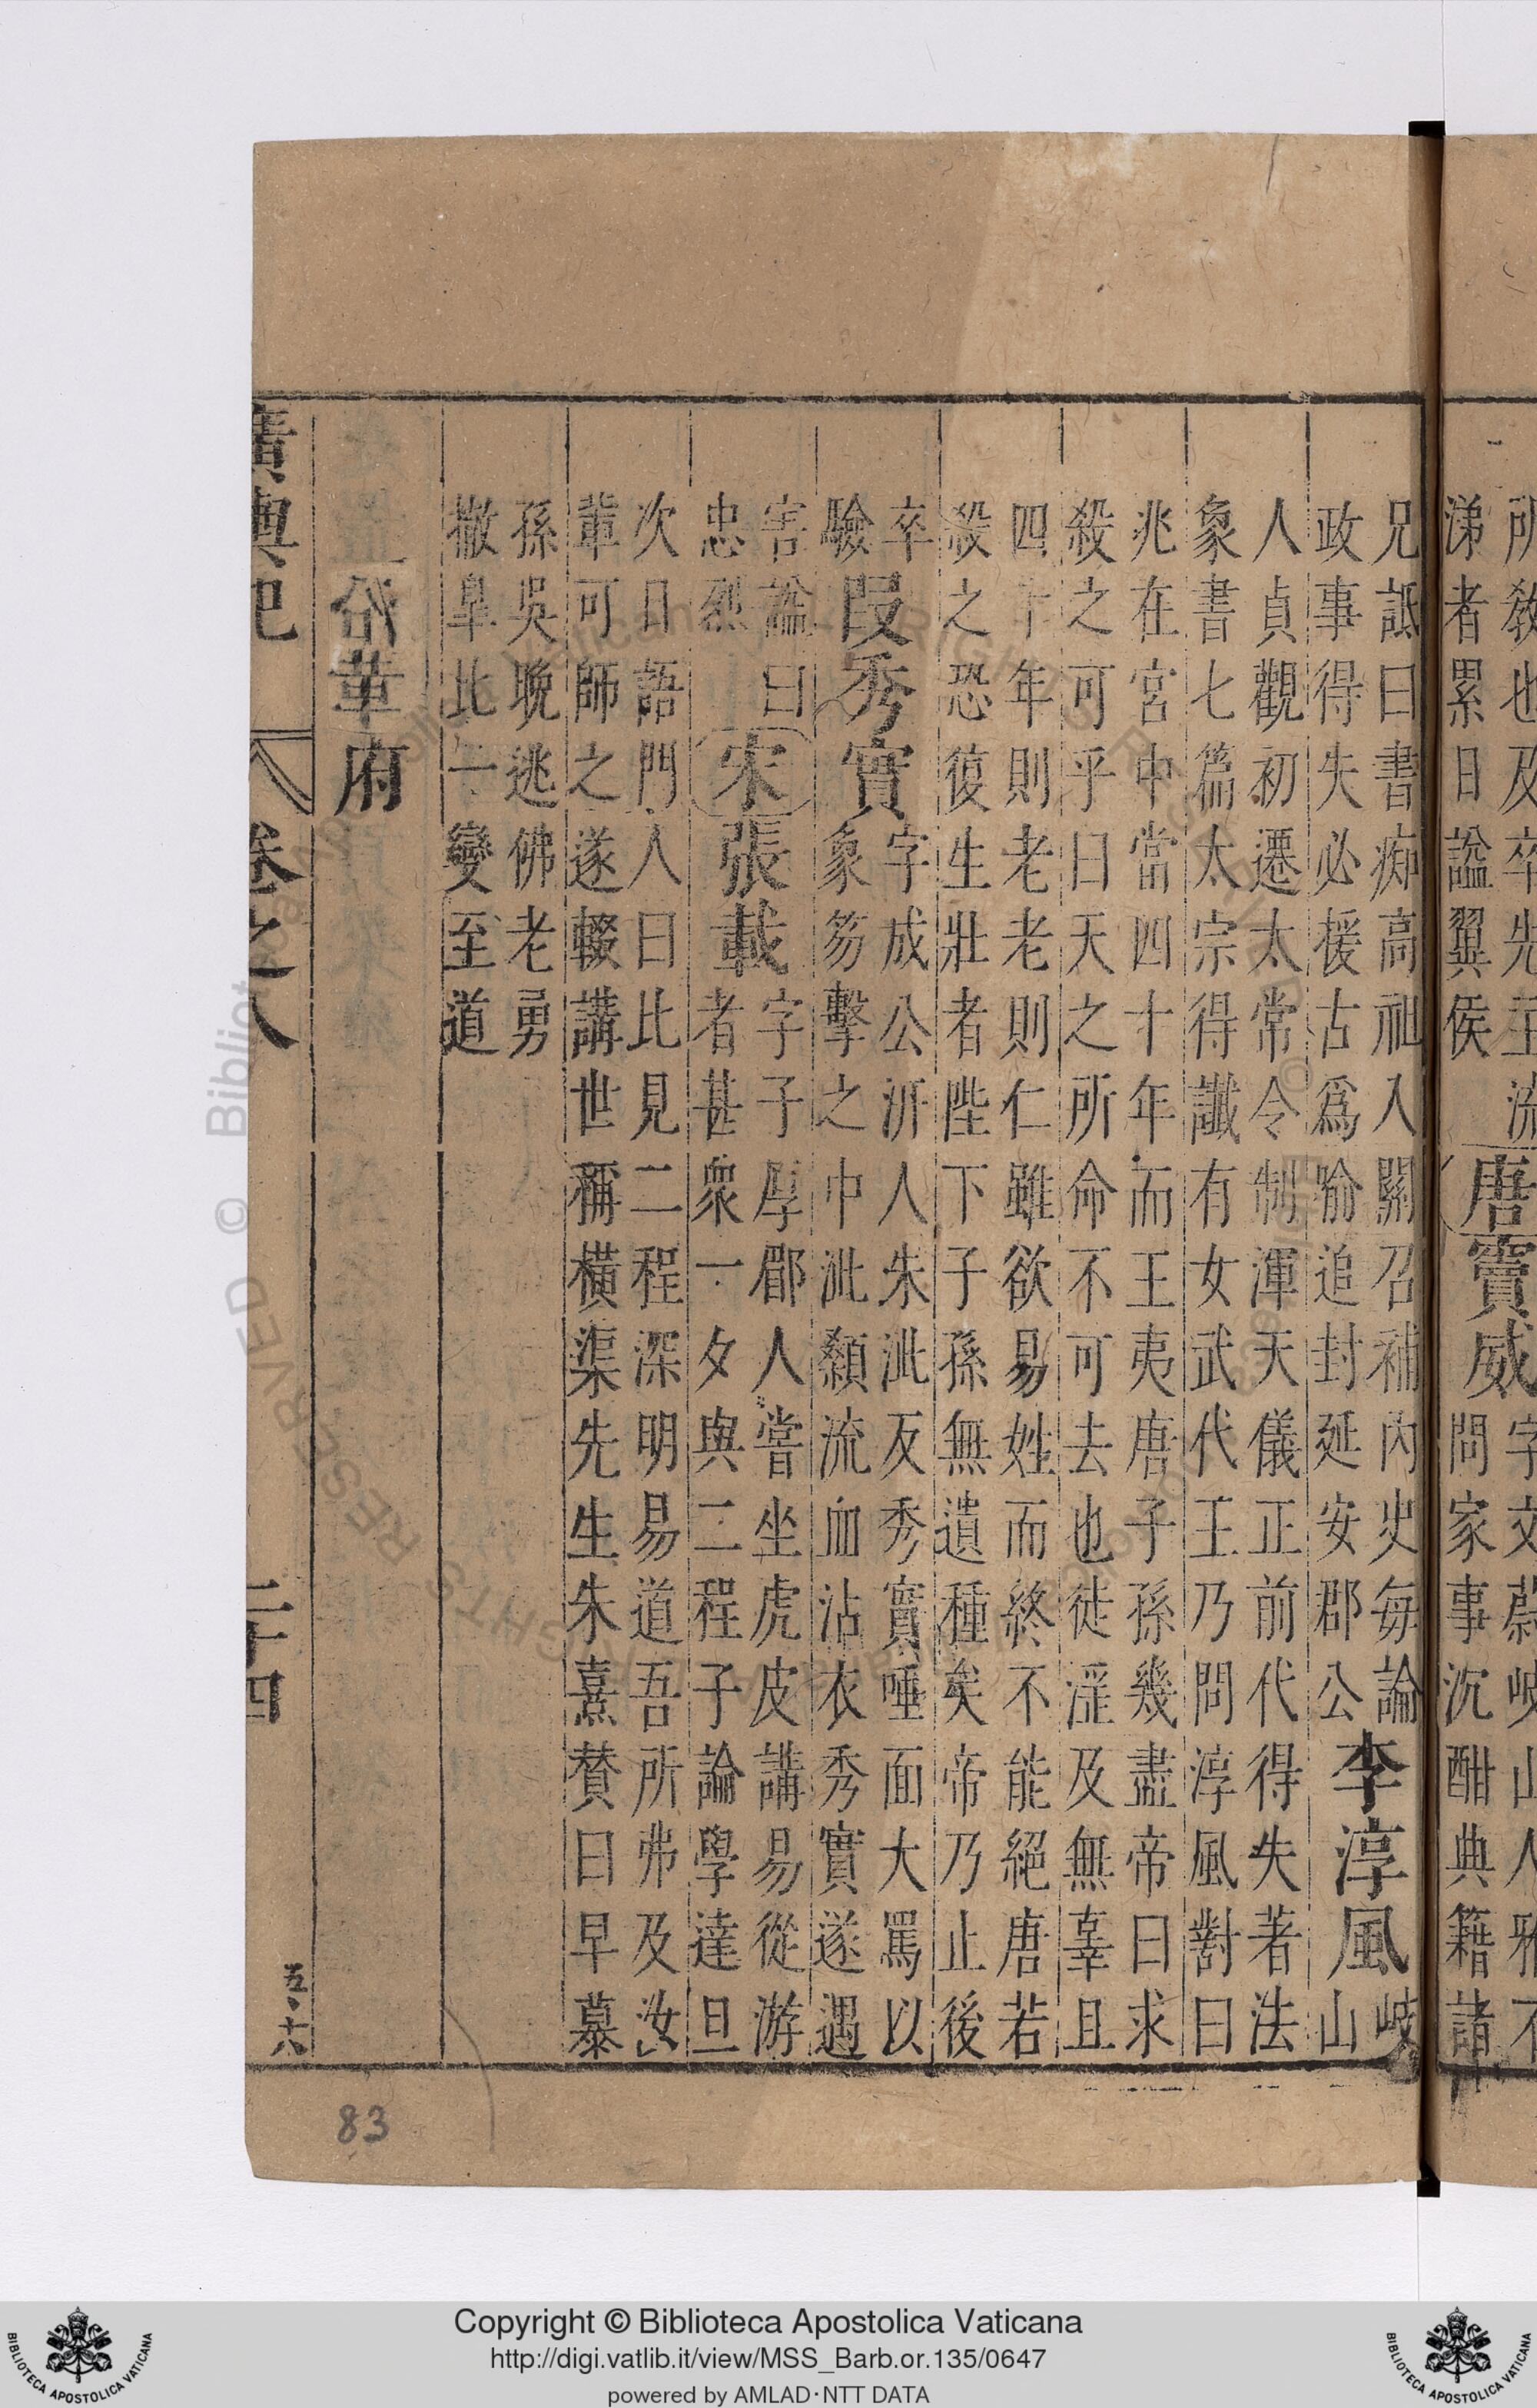 所教也及卒先王流
涕者累日諡翼侯
唐
竇威
字文蔚岐山人雅不
問家事沉酣典籍諸
兄詆曰書痴高祖入關召補內史每論
政事得失必援古爲喻追封延安郡公
李淳風
岐
山
人貞觀初遷太常令制渾天儀正前代得失著法
象書七篇太宗得讖有女武代王乃問淳風對曰
兆在宮中當四十年而王夷唐子孫幾盡帝曰求
殺之可乎曰天之所命不可去也徒淫及無辜且
四十年則老老則仁雖欲易姓而終不能絕唐若
殺之恐復生壯者陛下子孫無遺種矣帝乃止後
卒
驗
段秀實
字成公汧人朱泚反秀實唾面大罵以
象笏擊之中泚顙流血沾衣秀實遂遇
害諡曰
忠烈
宋
張載
字子厚郿人嘗坐虎皮講易從游
者甚衆一夕與二程子論學達旦
次日語門人曰比見二程深明易道吾所弗及汝
輩可師之遂輟講世稱橫渠先生朱熹贊曰早慕
孫吳晚逃佛老勇
撤皐比一變至道
岱華府
廣輿記 卷之八 二十四
五十六
83
Copyright © Biblioteca Apostolica Vaticana
http://digi.vatlib.it/view/MSS_Barb.or.135/0647
powered by AMLAD·NTT DATA